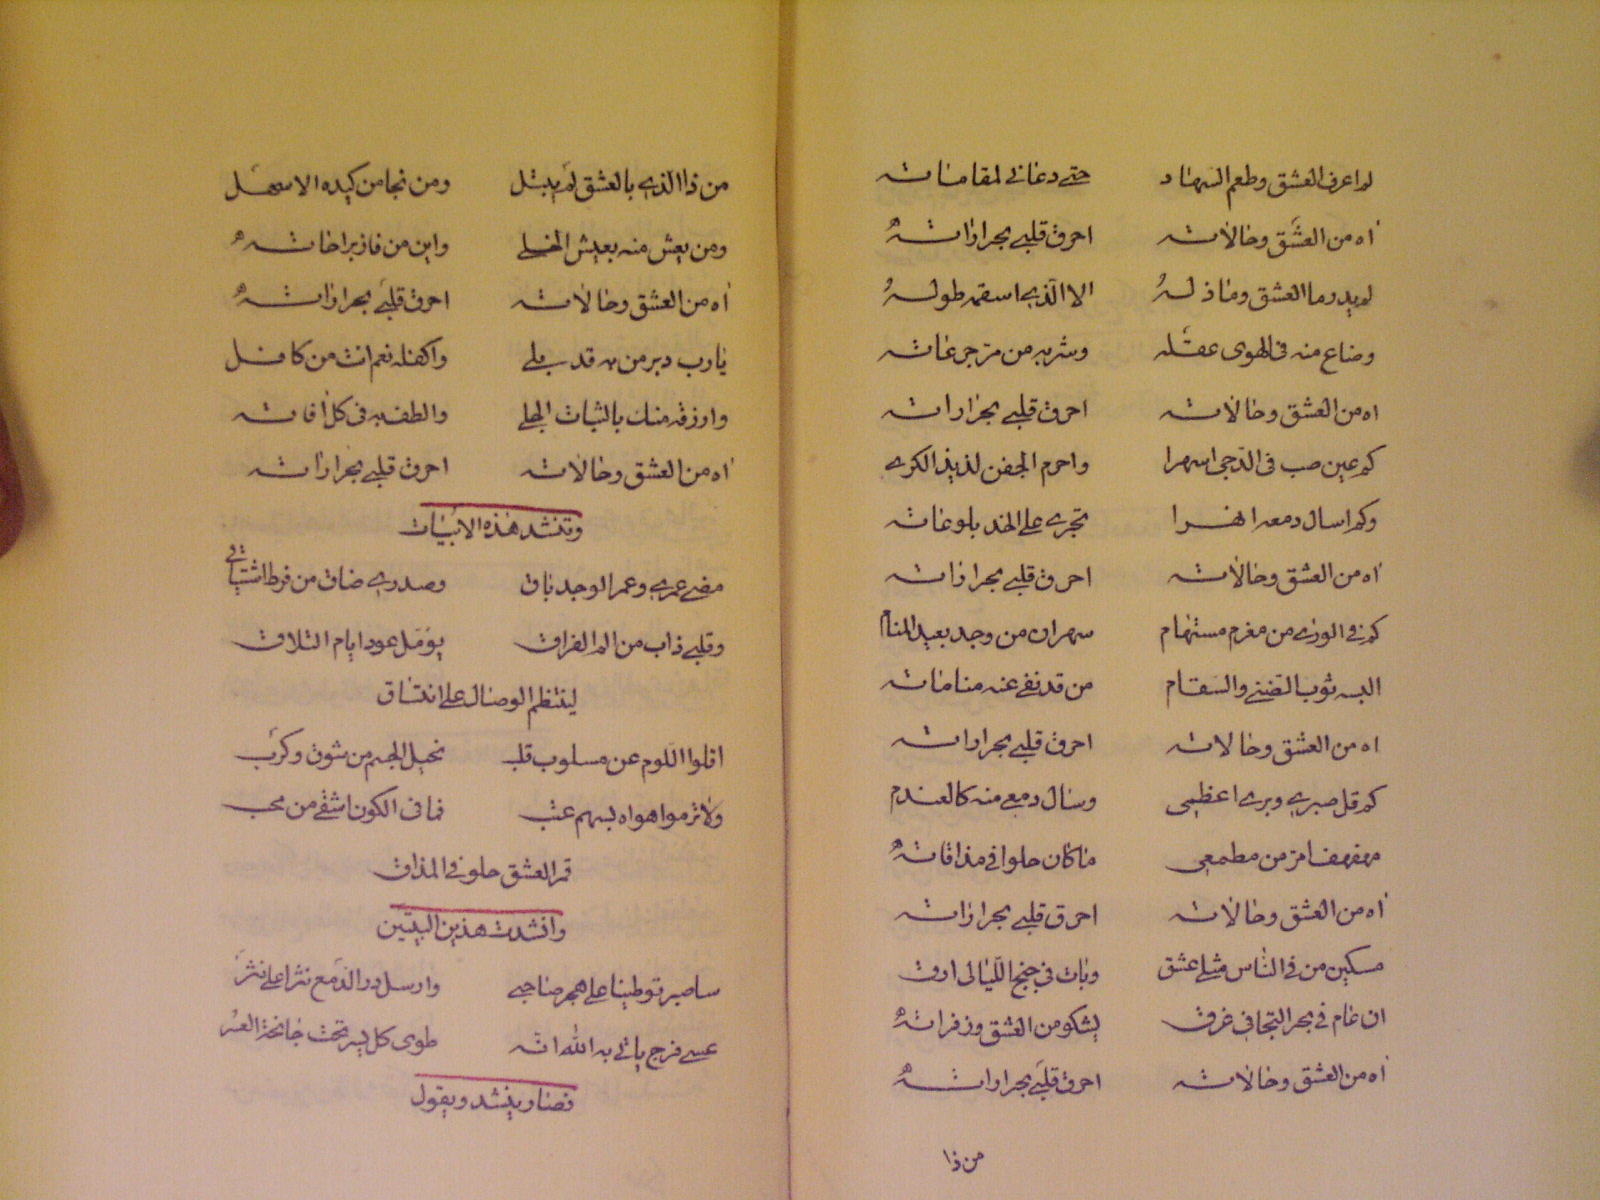 لم اعرف العشق وطعم السهاد حتى دعانى لمقاماته
آه من العشق وحالاته احرق قلبى بحراراته
لم يدر ما العشق وما ذله الا الذى اسقمه طوله
وضاع منه فى الهوى عقله وشربه من مر جرعاته
اه من العشق وحالاته احرق قلبى بحراراته
كم عين صب فى الدجى اسهرا واحرم الجفن لذيذ الكرى
وكم اسال دمعه انهرا تجرى على الخد بلوعاته
آه من العشق وحالاته احرق قلبى بحراراته
كم فى الورى من مغرم مستهام سهران من وجد بعيد المنام
البسه ثوب الضنى والسقام من قد نفى عنه مناماته
اه من العشق وحالاته احرق قلبى بحراراته
كم قل صبرى وبرى اعظمى وسال دمعى منه كالعندم
مهفهف امر من مطعمى ما كان حلوا فى مذاقاته
آه من العشق وحالاته احرق قلبى بحراراته
مسكين من فى الناس مثلى عشق وبات فى جنح الليالى ارق
ان عام فى بحر التجافى غرق يشكو من العشق وزفراته
آه من العشق وحالاته احرق قلبى بحراراته
من ذا
من ذا الذى بالعشق لم يبتل ومن نجا من كيده الاسهل
ومن يعش منه بعيش الخلى واين من فاز براحاته
آه من العشق وحالاته احرق قلبى بحراراته
يا رب دبر من به قد بلى واكفله نعم انت من كافل
وارزقه منك بالثبات الجلى والطف به فى كل آفاته
آه من العشق وحالاته احرق قلبى بحراراته
وتنشد هذه الابيات
مضى عمرى وعمر الوجد باق وصدرى ضاق من فرط اشتياقى
وقلبى ذاب من الم الفراق يؤمل عود ايام التلاق
لينتظم الوصال على اتساق
اقلوا اللوم عن مسلوب قلب نحيل الجسم من شوق وكرب
ولا ترموا هواه بسهم عتب فما فى الكون اشقى من محب
العشق حلو فى المذاق
وانشدت هذين البيتين
ساصبر توطينا على هجر صاحبى وارسل در الدمع نثرا على نثر
عسى فرج ياتى به الله انه طوى كل يسر تحت جانحة العسر
فصار ينشد ويقول